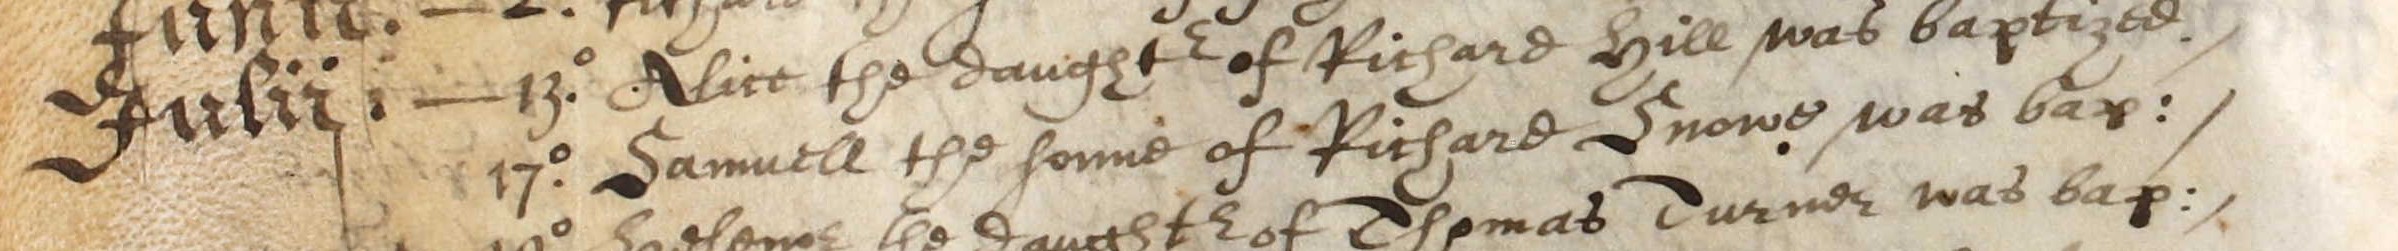 Junii. — 2. Richard
Julii. — 13.° Alice the daught^r of Richard Hill was baptized. /
17.° Samuell the sonne of Richard Snowe was bap: /
the daught^r of Thomas Turner was bap: /